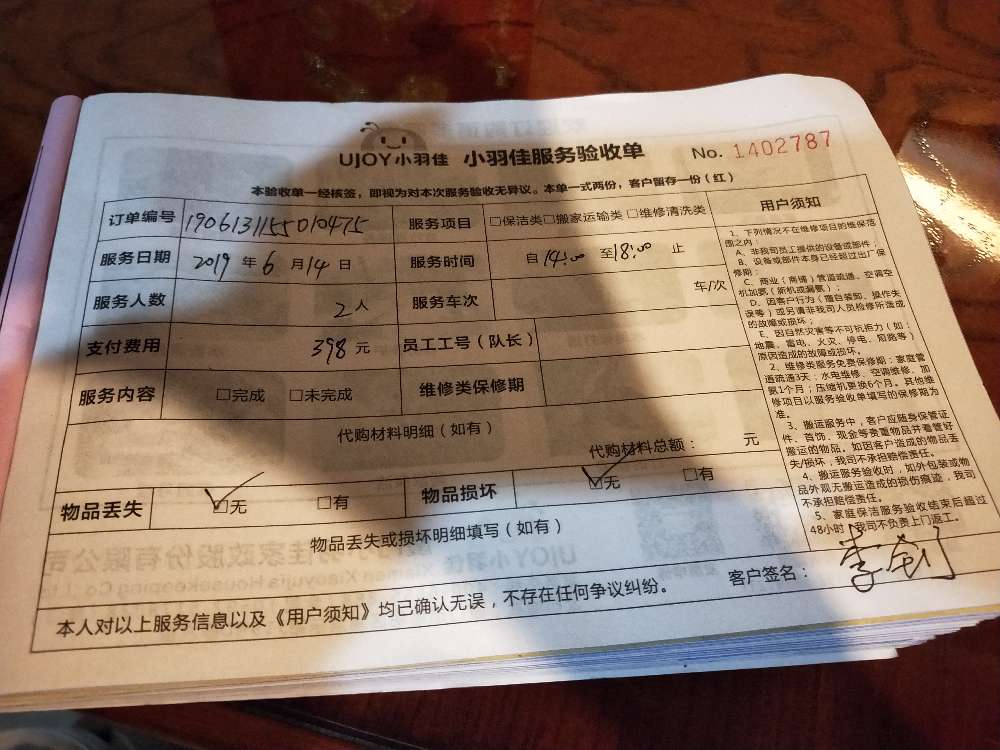 UJOY小羽佳 小羽佳服务验收单 No. 1402787
本验收单一经核签，即视为对本次服务验收无异议。本单一式两份，客户留存一份（红）
订单编号 1906131155010475 服务项目 □保洁类□搬家运输类□维修清洗类
服务日期 2019 年 6 月 14 日 服务时间 自 14:00 至18:00 止
服务人数 2人 服务车次 车/次
支付费用 398 元 员工工号（队长）
服务内容 □完成 □未完成 维修类保修期
代购材料明细（如有）
代购材料总额： 元
物品丢失 ☑无 □有 物品损坏 ☑无 □有
物品丢失或损坏明细填写（如有）
用户须知
1、下列情况不在维修项目的维保范
围之内：
A、非我司员工提供的设备或部件；
B、设备或部件本身已经超过出厂保
修期；
C、商业（商铺）管道疏通、空调空
机加氨（新机或漏氨）；
D、因客户行为（擅自装卸、操作失
误等）或另请非我司人员检修所造成
的故障或损坏；
E、因自然灾害等不可抗拒力（如：
地震、雷电、火灾、停电、短路等）
原因造成的故障或损坏。
2、维修类服务免费保修期：家庭管
道疏通3天；水电维修、空调维修、加
氨1个月；压缩机更换6个月。其他维
修项目以服务验收单填写的保修期为
准。
3、搬运服务中，客户应随身保管证
件、首饰、现金等贵重物品并看管好
搬运的物品。如因客户造成的物品丢
失/损坏，我司不承担赔偿责任。
4、搬运服务验收时，如外包装或物
品外观无搬运造成的损伤痕迹，我司
不承担赔偿责任。
5、家庭保洁服务验收结束后超过
48小时，我司不负责上门返工。
本人对以上服务信息以及《用户须知》均已确认无误，不存在任何争议纠纷。 客户签名：